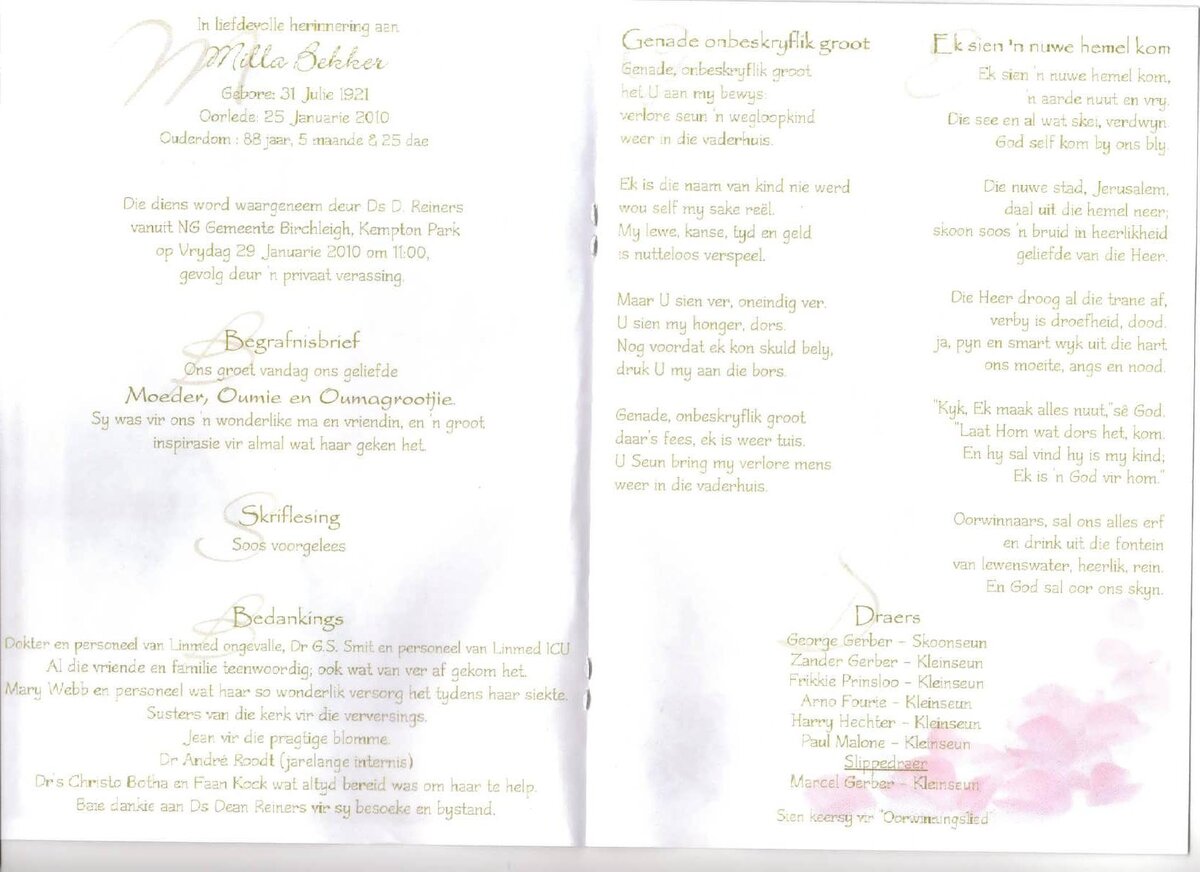 In liefdevolle herinnering aan
Milla Bekker
Gebore: 31 Julie 1921
Oorlede: 25 Januarie 2010
Ouderdom : 88 jaar, 5 maande & 25 dae
Die diens word waargeneem deur Ds D. Reiners
vanuit NG Gemeente Birchleigh, Kempton Park
op Vrydag 29 Januarie 2010 om 11:00,
gevolg deur 'n privaat verassing.
Begrafnisbrief
Ons groet vandag ons geliefde
Moeder, Oumie en Oumagrootjie.
Sy was vir ons 'n wonderlike ma en vriendin, en 'n groot
inspirasie vir almal wat haar geken het.
Skriflesing
Soos voorgelees
Bedankings
Dokter en personeel van Linmed ongevalle, Dr G.S. Smit en personeel van Linmed ICU
Al die vriende en familie teenwoordig; ook wat van ver af gekom het.
Mary Webb en personeel wat haar so wonderlik versorg het tydens haar siekte.
Susters van die kerk vir die verversings.
Jean vir die pragtige blomme.
Dr André Roodt (jarelange internis)
Dr's Christo Botha en Faan Kock wat altyd bereid was om haar te help.
Baie dankie aan Ds Dean Reiners vir sy besoeke en bystand.
Genade onbeskryflik groot
Genade, onbeskryflik groot
het U aan my bewys:
verlore seun 'n wegloopkind
weer in die vaderhuis.
Ek is die naam van kind nie werd
wou self my sake reël.
My lewe, kanse, tyd en geld
is nutteloos verspeel.
Maar U sien ver, oneindig ver.
U sien my honger, dors.
Nog voordat ek kon skuld bely,
druk U my aan die bors.
Genade, onbeskryflik groot
daar's fees, ek is weer tuis.
U Seun bring my verlore mens
weer in die vaderhuis.
Ek sien 'n nuwe hemel kom
Ek sien 'n nuwe hemel kom,
'n aarde nuut en vry.
Die see en al wat skei, verdwyn.
God self kom by ons bly.
Die nuwe stad, Jerusalem,
daal uit die hemel neer;
skoon soos 'n bruid in heerlikheid
geliefde van die Heer.
Die Heer droog al die trane af,
verby is droefheid, dood.
ja, pyn en smart wyk uit die hart
ons moeite, angs en nood.
"Kyk, Ek maak alles nuut,"sê God.
"Laat Hom wat dors het, kom.
En hy sal vind hy is my kind;
Ek is 'n God vir hom."
Oorwinnaars, sal ons alles erf
en drink uit die fontein
van lewenswater, heerlik, rein.
En God sal oor ons skyn.
Draers
George Gerber - Skoonseun
Zander Gerber - Kleinseun
Frikkie Prinsloo - Kleinseun
Arno Fourie - Kleinseun
Harry Hechter - Kleinseun
Paul Malone - Kleinseun
Slippedraer
Marcel Gerber - Kleinseun
Sien keersy vir "Oorwinningslied"